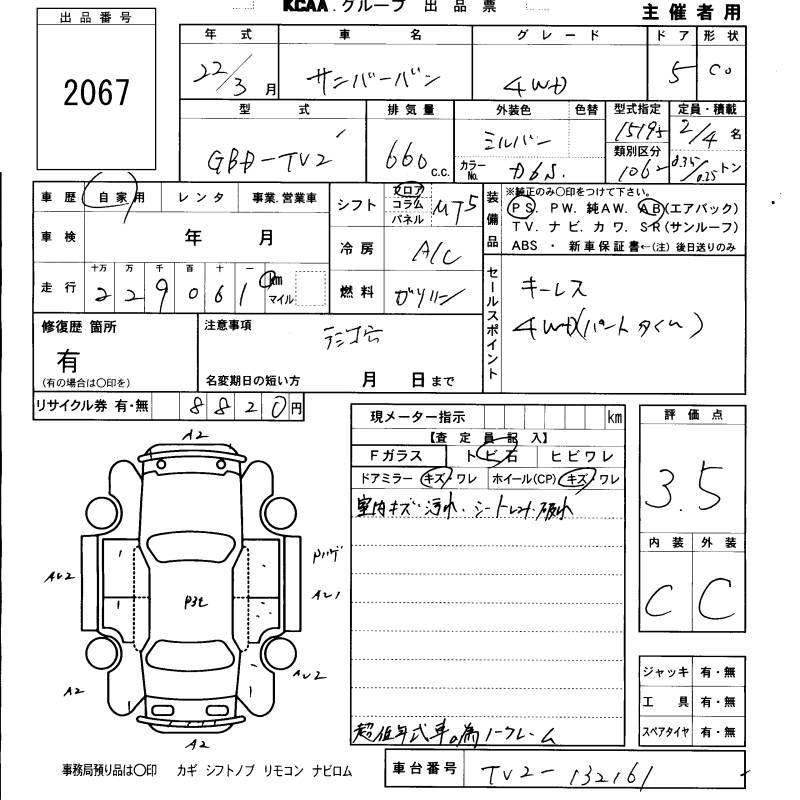 KCAA.グループ 出品票
主催者用
出品番号
2067
年式 車名 グレード ドア 形状
22/3月 サンバーバン 4WD 5 CO
型式 排気量 外装色 色替 型式指定 定員・積載
GBD-TV2 660 C.C. シルバー カラーNo. D6S. 15195 2/4名
類別区分
1062 0.35/0.25トン
車歴 自家用 レンタ 事業.営業車
シフト フロア コラム パネル MT5
装備品
※純正のみ〇印をつけて下さい。
PS. PW. 純AW. AB(エアバック)
TV. ナビ. カワ. SR(サンルーフ)
ABS ・ 新車保証書←(注) 後日送りのみ
車検 年 月
冷房 A/C
走行 十万 万 千 百 十 一
229061 km マイル
燃料 ガソリン
セールスポイント
キーレス
4WD(パートタイム)
修復歴 箇所
有
(有の場合は〇印を)
注意事項
名変期日の短い方 月 日まで
リサイクル券 有・無 8820円
現メーター指示 km
【査定員記入】
Fガラス トビ石 ヒビワレ
ドアミラー キズ・ワレ ホイール(CP) キズ・ワレ
室内キズ・汚れ・シート
超低年式車の為ノークレーム
評価点
3.5
内装 外装
C C
ジャッキ 有・無
工具 有・無
スペアタイヤ 有・無
A2
AU2
AU1
AU2
A2
A2
事務局預り品は〇印 カギ シフトノブ リモコン ナビロム
車台番号 TV2-132161